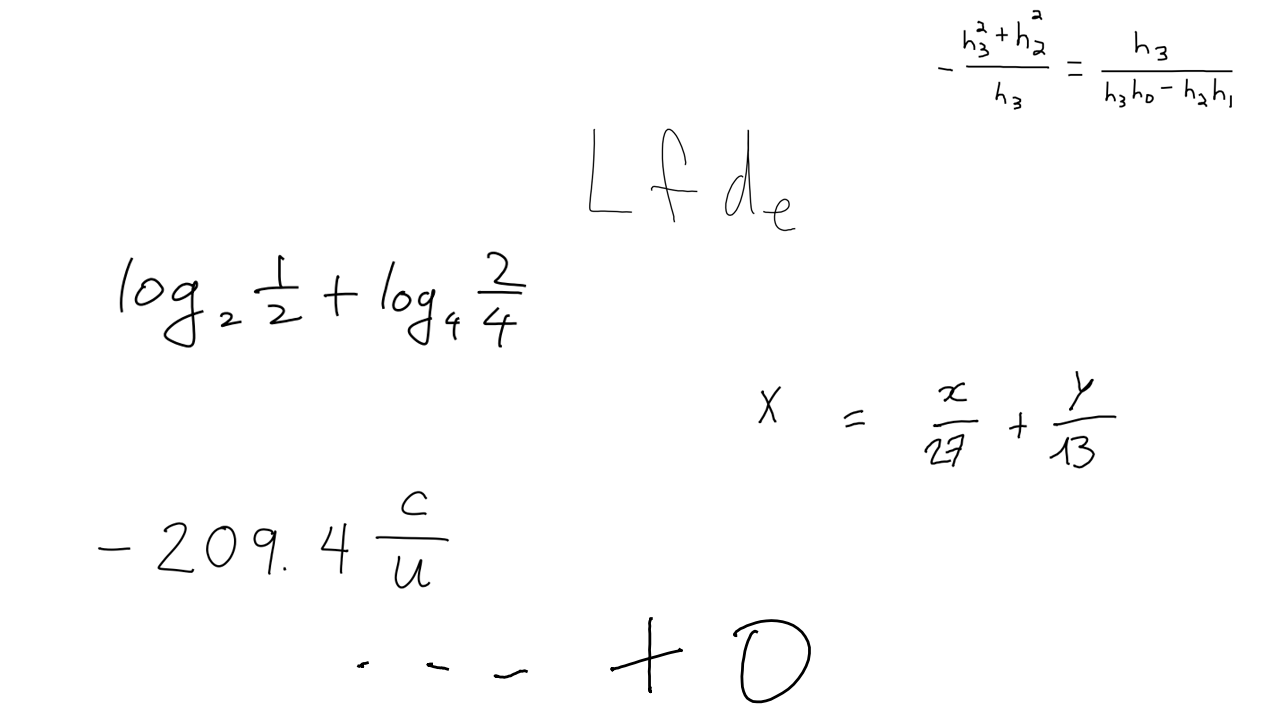 -\frac{h_3^2+h_2^2}{h_3} = \frac{h_3}{h_3h_0-h_2h_1}
L f d_e
\log_2 \frac{1}{2} + \log_4 \frac{2}{4}
x = \frac{x}{27} + \frac{y}{13}
-209.4 \frac{c}{u}
... + 0